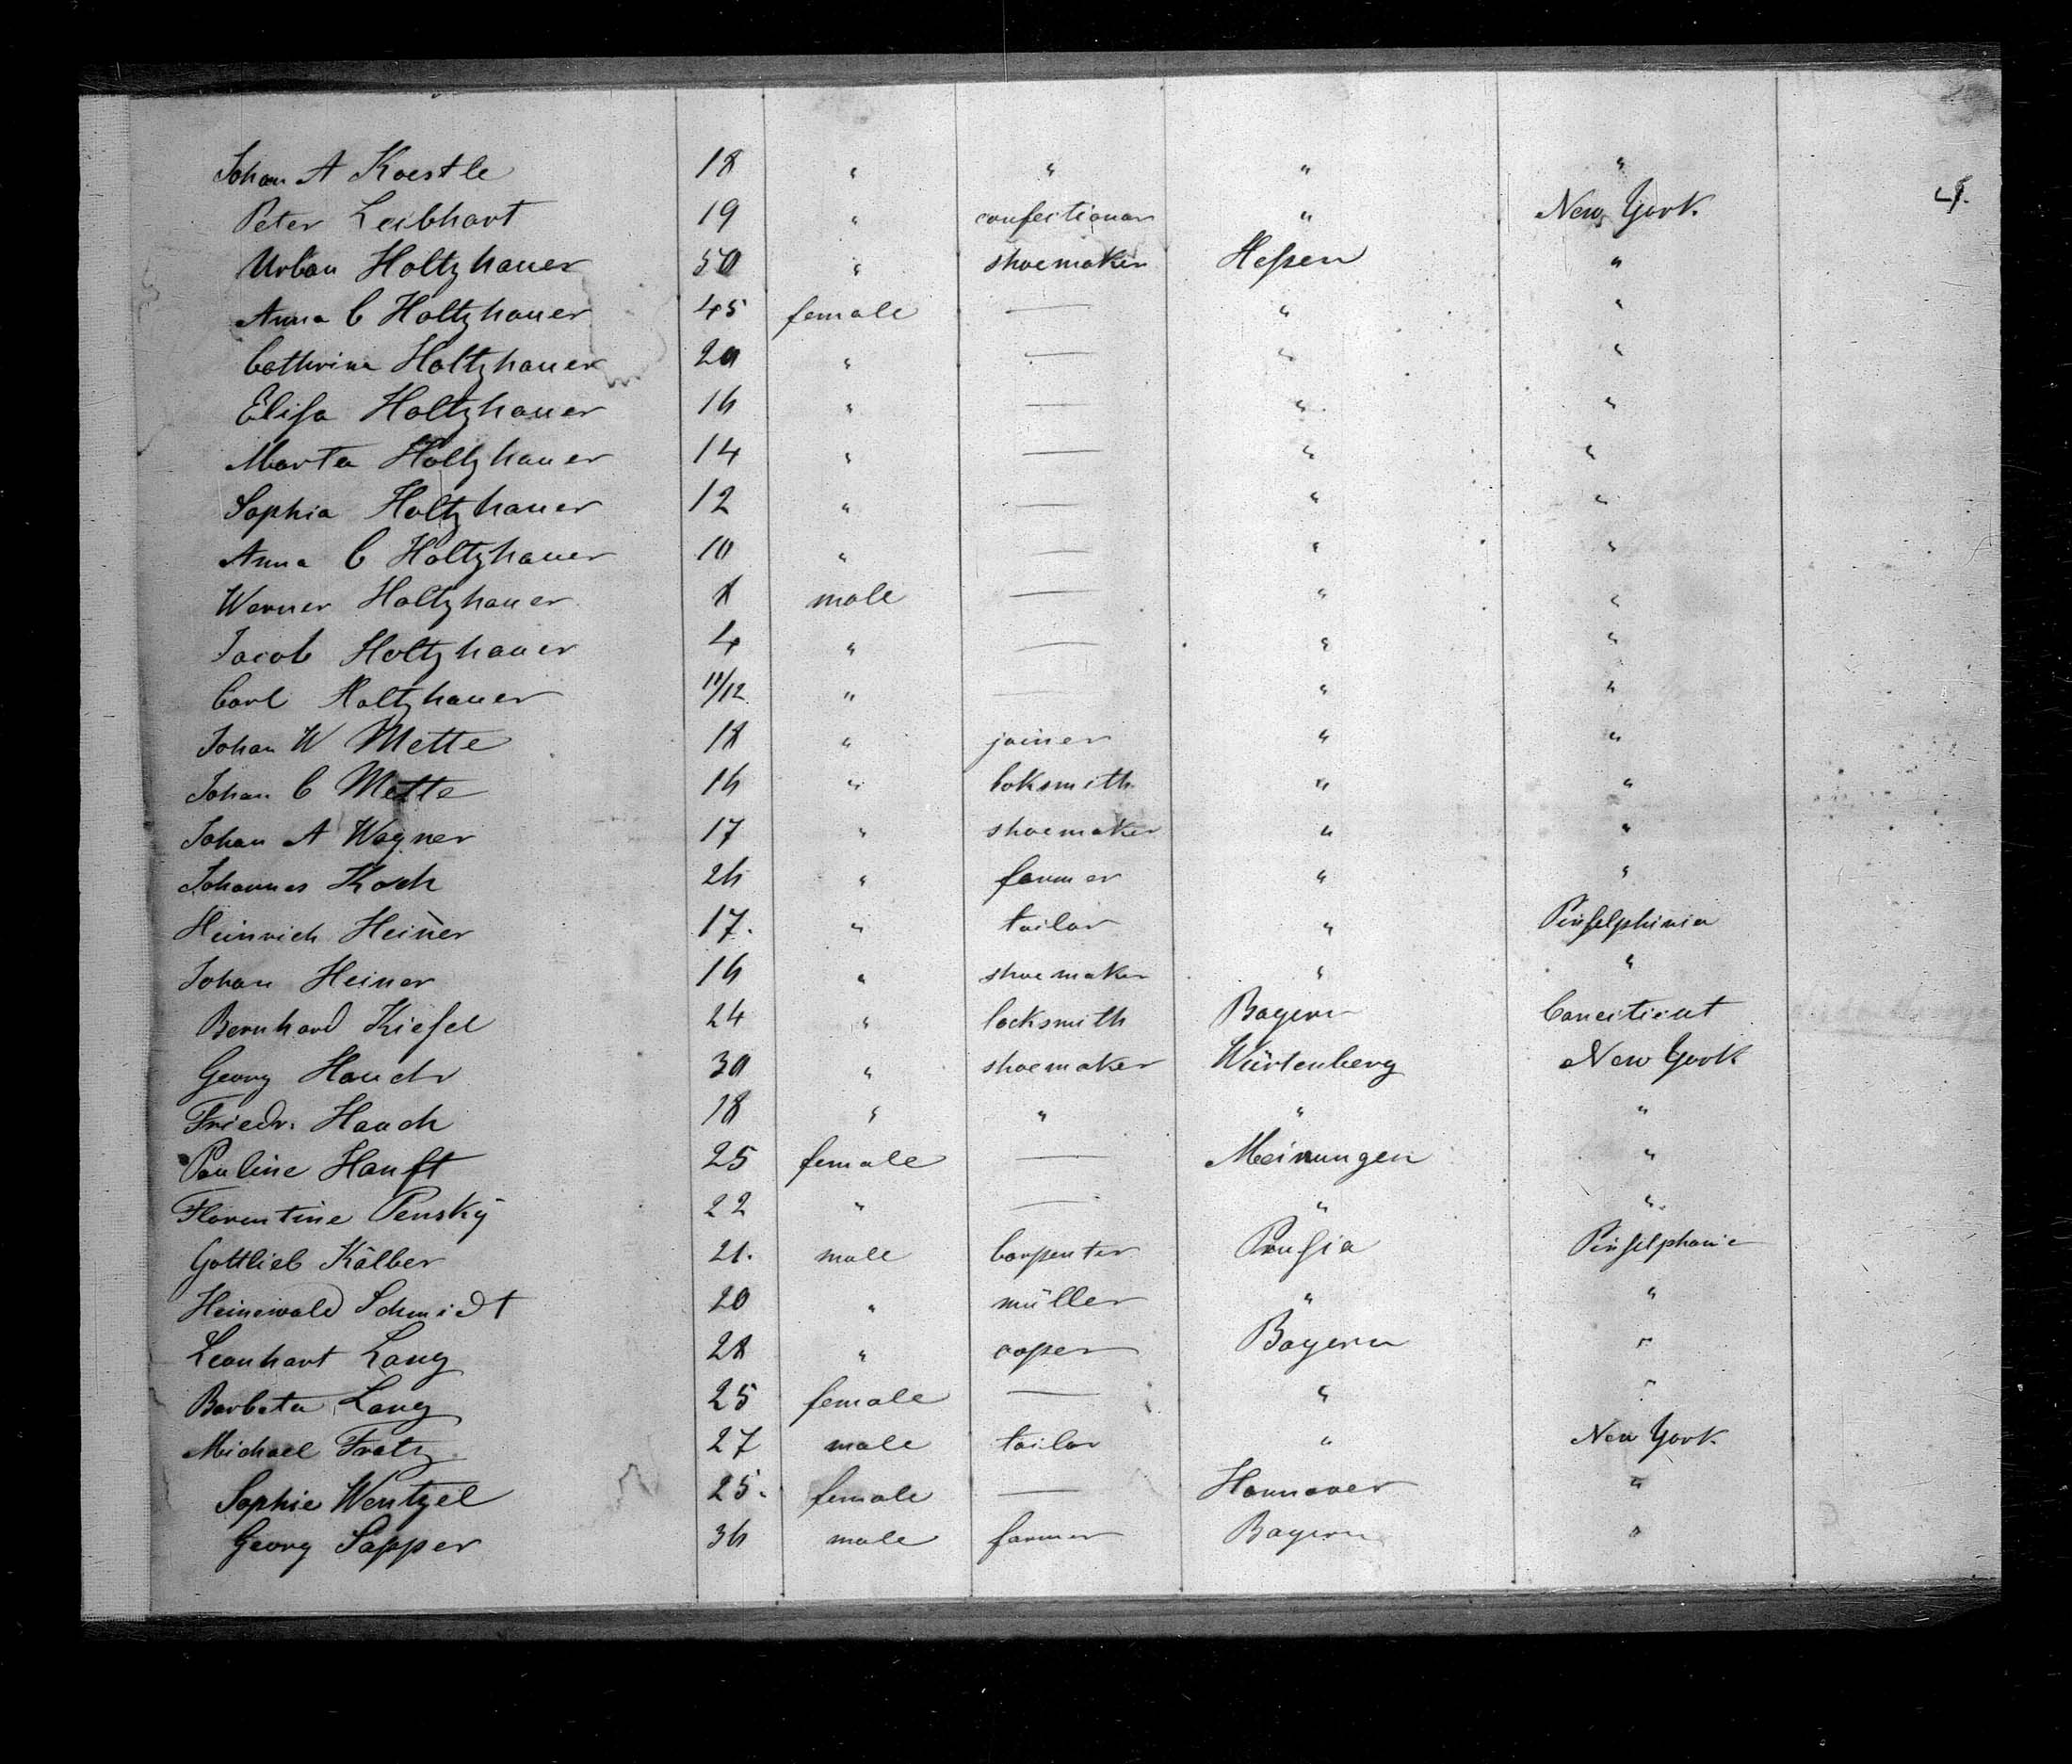 Johan A Koestle 18 " " " "
Peter Leibhart 19 " confectionar " New York 4.
Urban Holtzhauer 50 " shoemaker Hessen "
Anna C Holtzhauer 45 female — " "
Cathrina Holtzhauer 20 " — " "
Elisa Holtzhauer 16 " — " "
Marta Holtzhauer 14 " — " "
Sophia Holtzhauer 12 " — " "
Anna C Holtzhauer 10 " — " "
Werner Holtzhauer 8 male — " "
Jacob Holtzhauer 4 " — " "
Carl Holtzhauer 11/12 " — " "
Johan W Mette 18 " joiner " "
Johan C Mette 16 " loksmith " "
Johan A Wagner 17 " shoemaker " "
Johannes Koch 26 " farmer " "
Heinrich Heiner 17. " tailor " Pinselphinia
Johan Heiner 16 " shoemaker " "
Bernhard Kiesel 24 " locksmith Bayern Conecticut
Georg Hauch 30 " shoemaker Würtenberg New York
Friedr. Hauch 18 " " " "
Pauline Hanft 25 female — Meinungen "
Florentine Pensky 22 " — " "
Gottlieb Kälber 21. male Carpenter Prusia Pinselphanie
Heinewald Schmidt 20 " müller " "
Leonhart Lang 28 " cooper Bayern "
Barbata Lang 25 female — " "
Michael Fratz 27 male tailor " New York
Sophie Wentzel 25. female — Hannover "
Georg Sapper 36 male farmer Bayern "